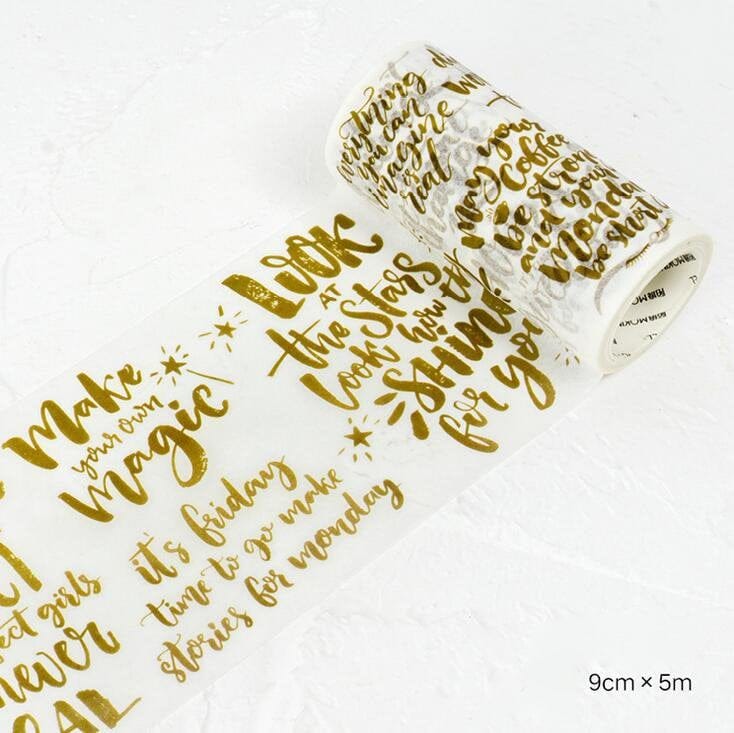 everything
you can
imagine
is
real
may your
coffee
be strong
and your
Monday
be short
LOOK
AT
the Stars
look how they
SHINE
for you
Make
your own
Magic
it's friday
time to go make
stories for monday
girls
never